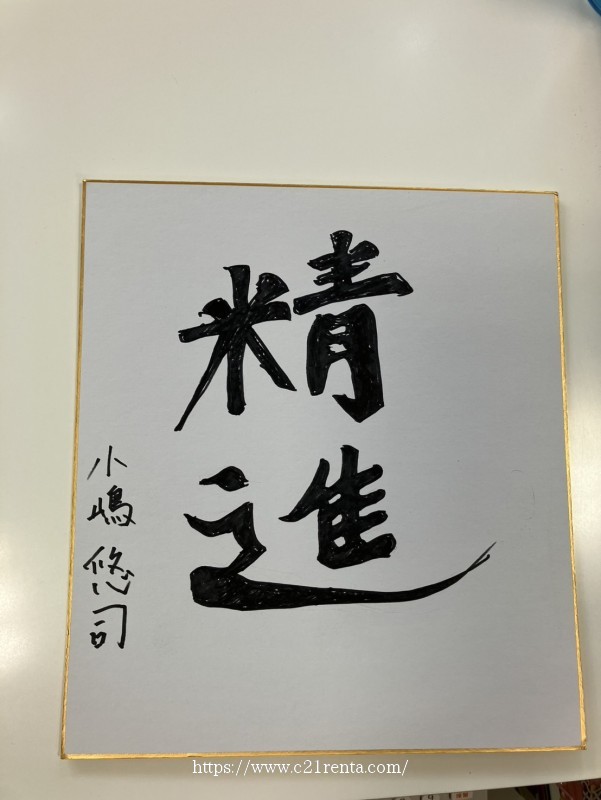 精進
小嶋悠司
https://www.c21renta.com/